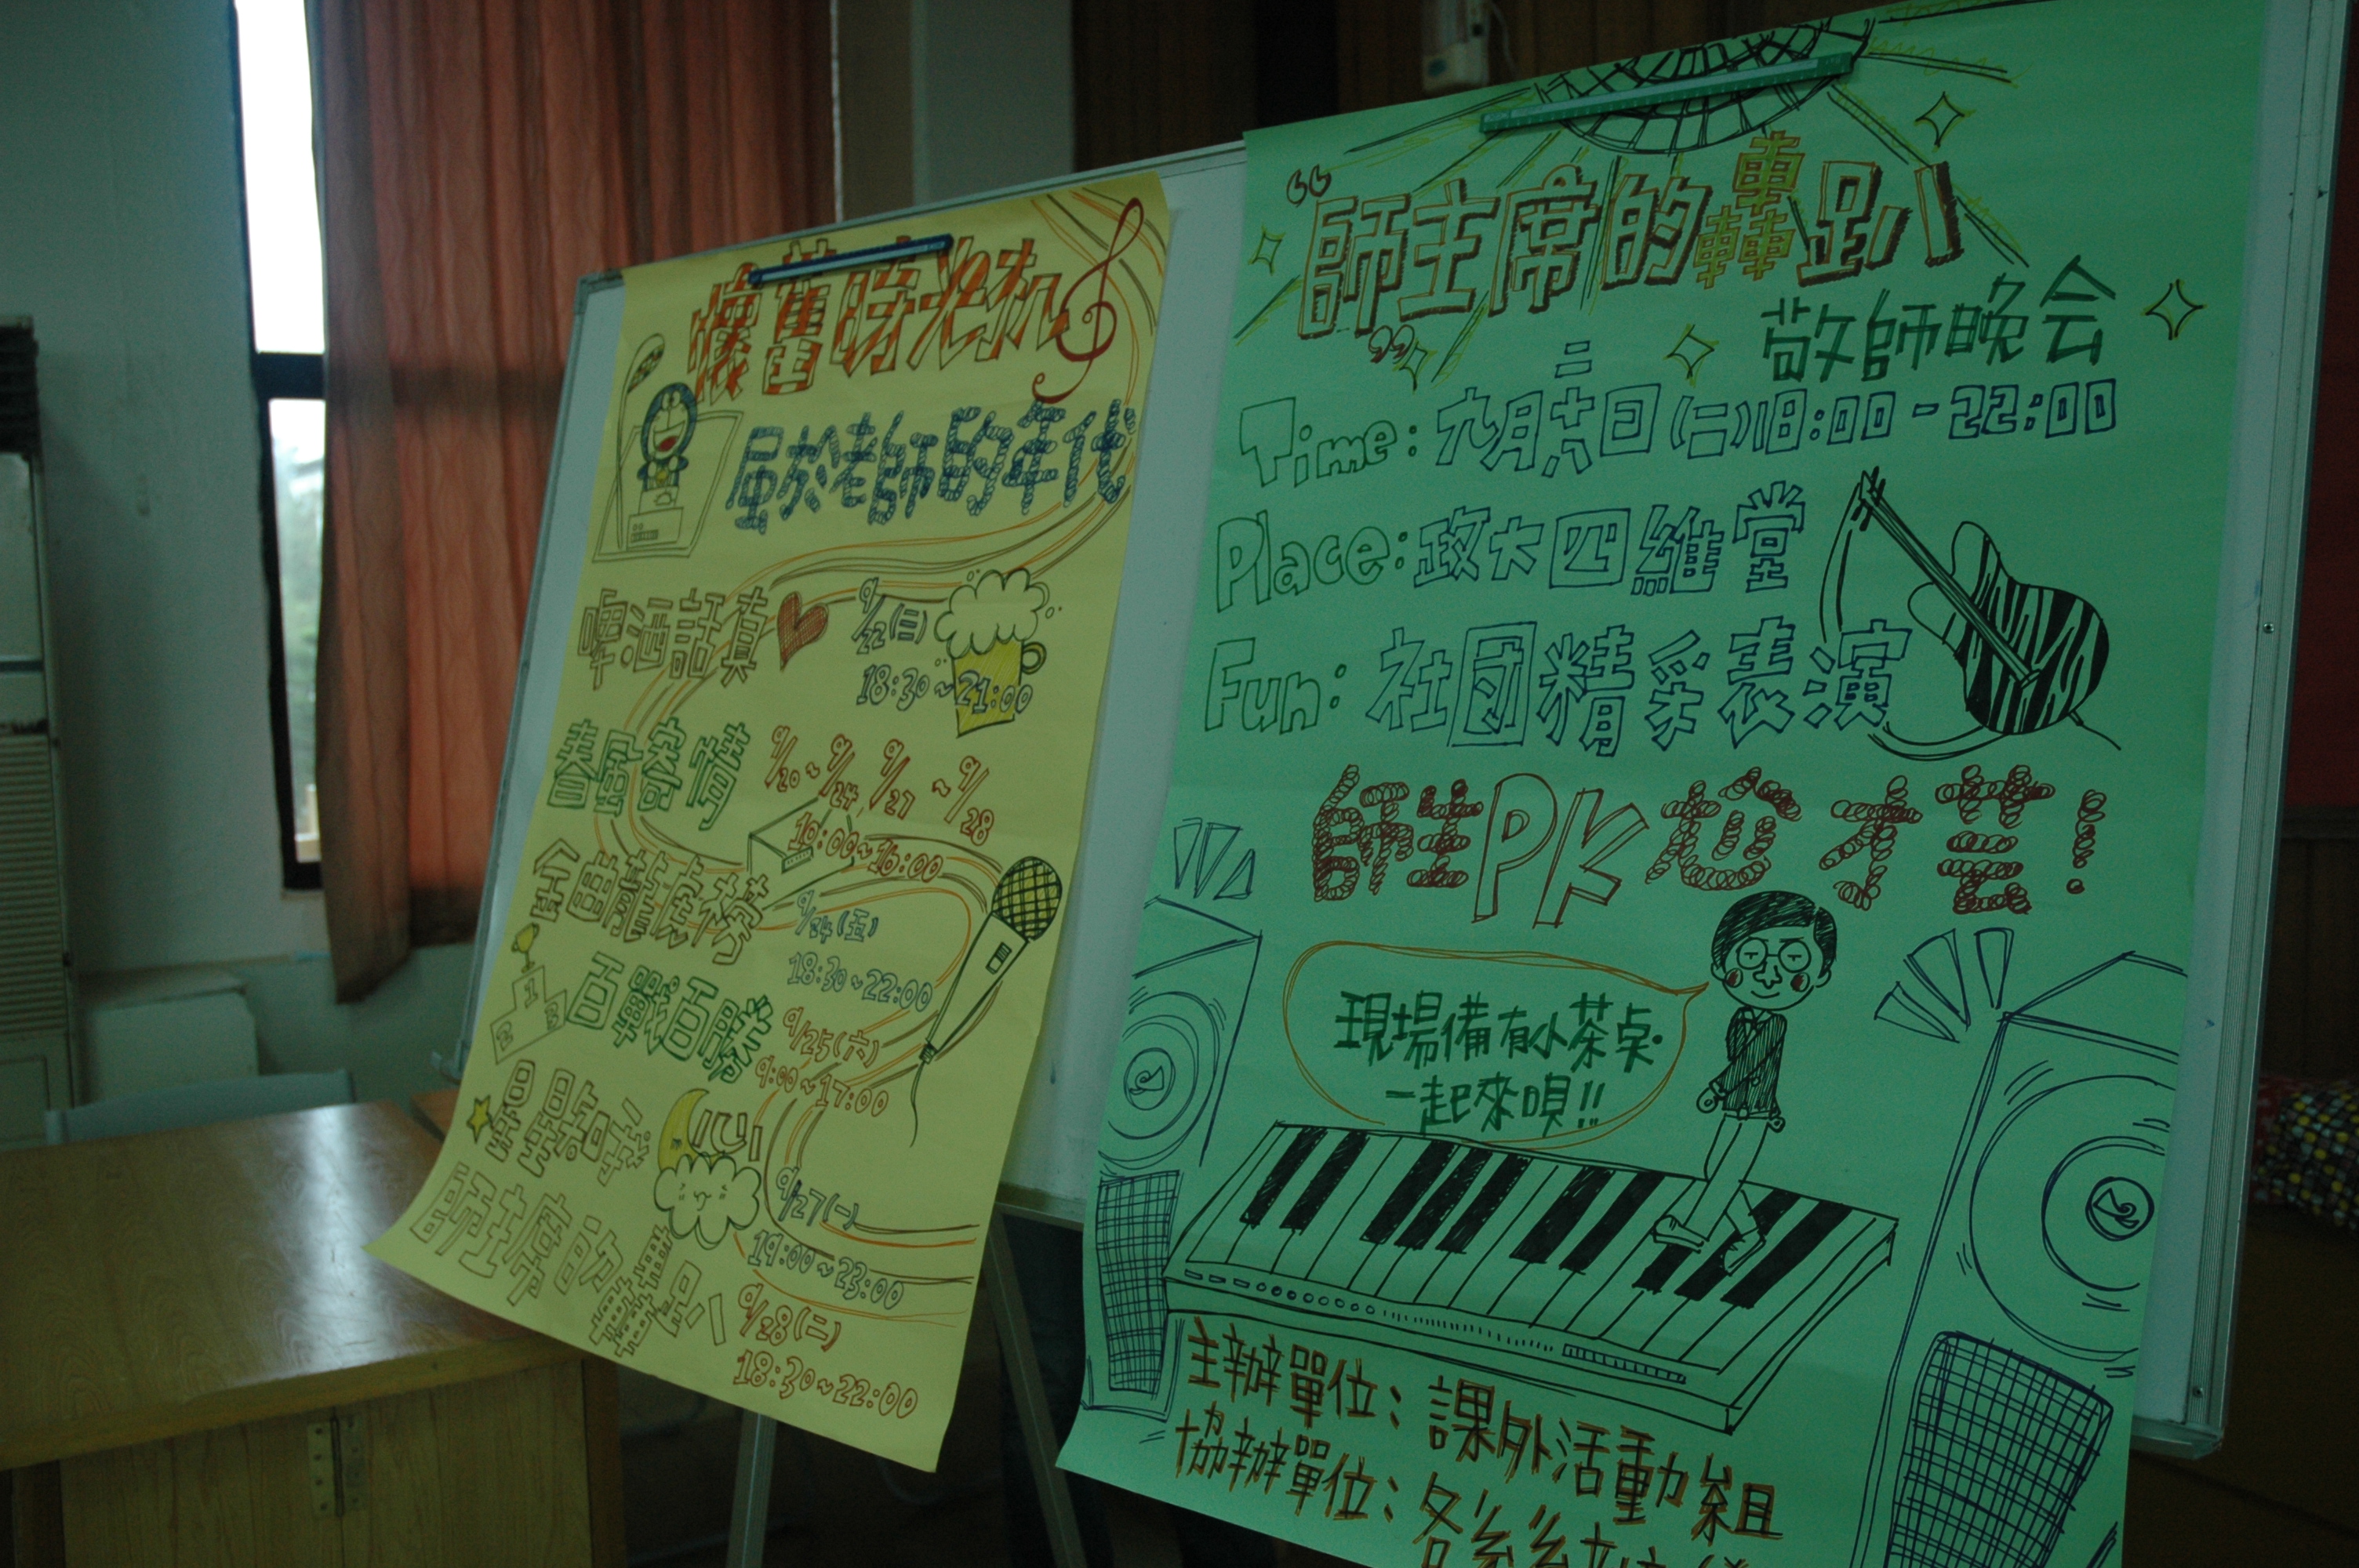 懷舊時光机
屬於老師的年代
啤酒話真
9/22(三)
18:30~21:00
春風寄情
9/20~9/24, 9/27~9/28
10:00~16:00
金曲龍虎榜
9/24(五)
18:30~22:00
百戰百勝
9/25(六)
9:00~17:00
星星知我心
9/27(一)
19:00~23:00
師主席的轟趴
9/28(二)
18:30~22:00
1
2
3
“師主席的轟趴”
敬師晚会
Time: 九月二十八日(二)18:00-22:00
Place: 政大四維堂
Fun: 社团精采表演
師生PK尬才芸!
現場備有小茶桌.
一起來唄!!
主辦單位: 課外活動組
協辦單位: 各系